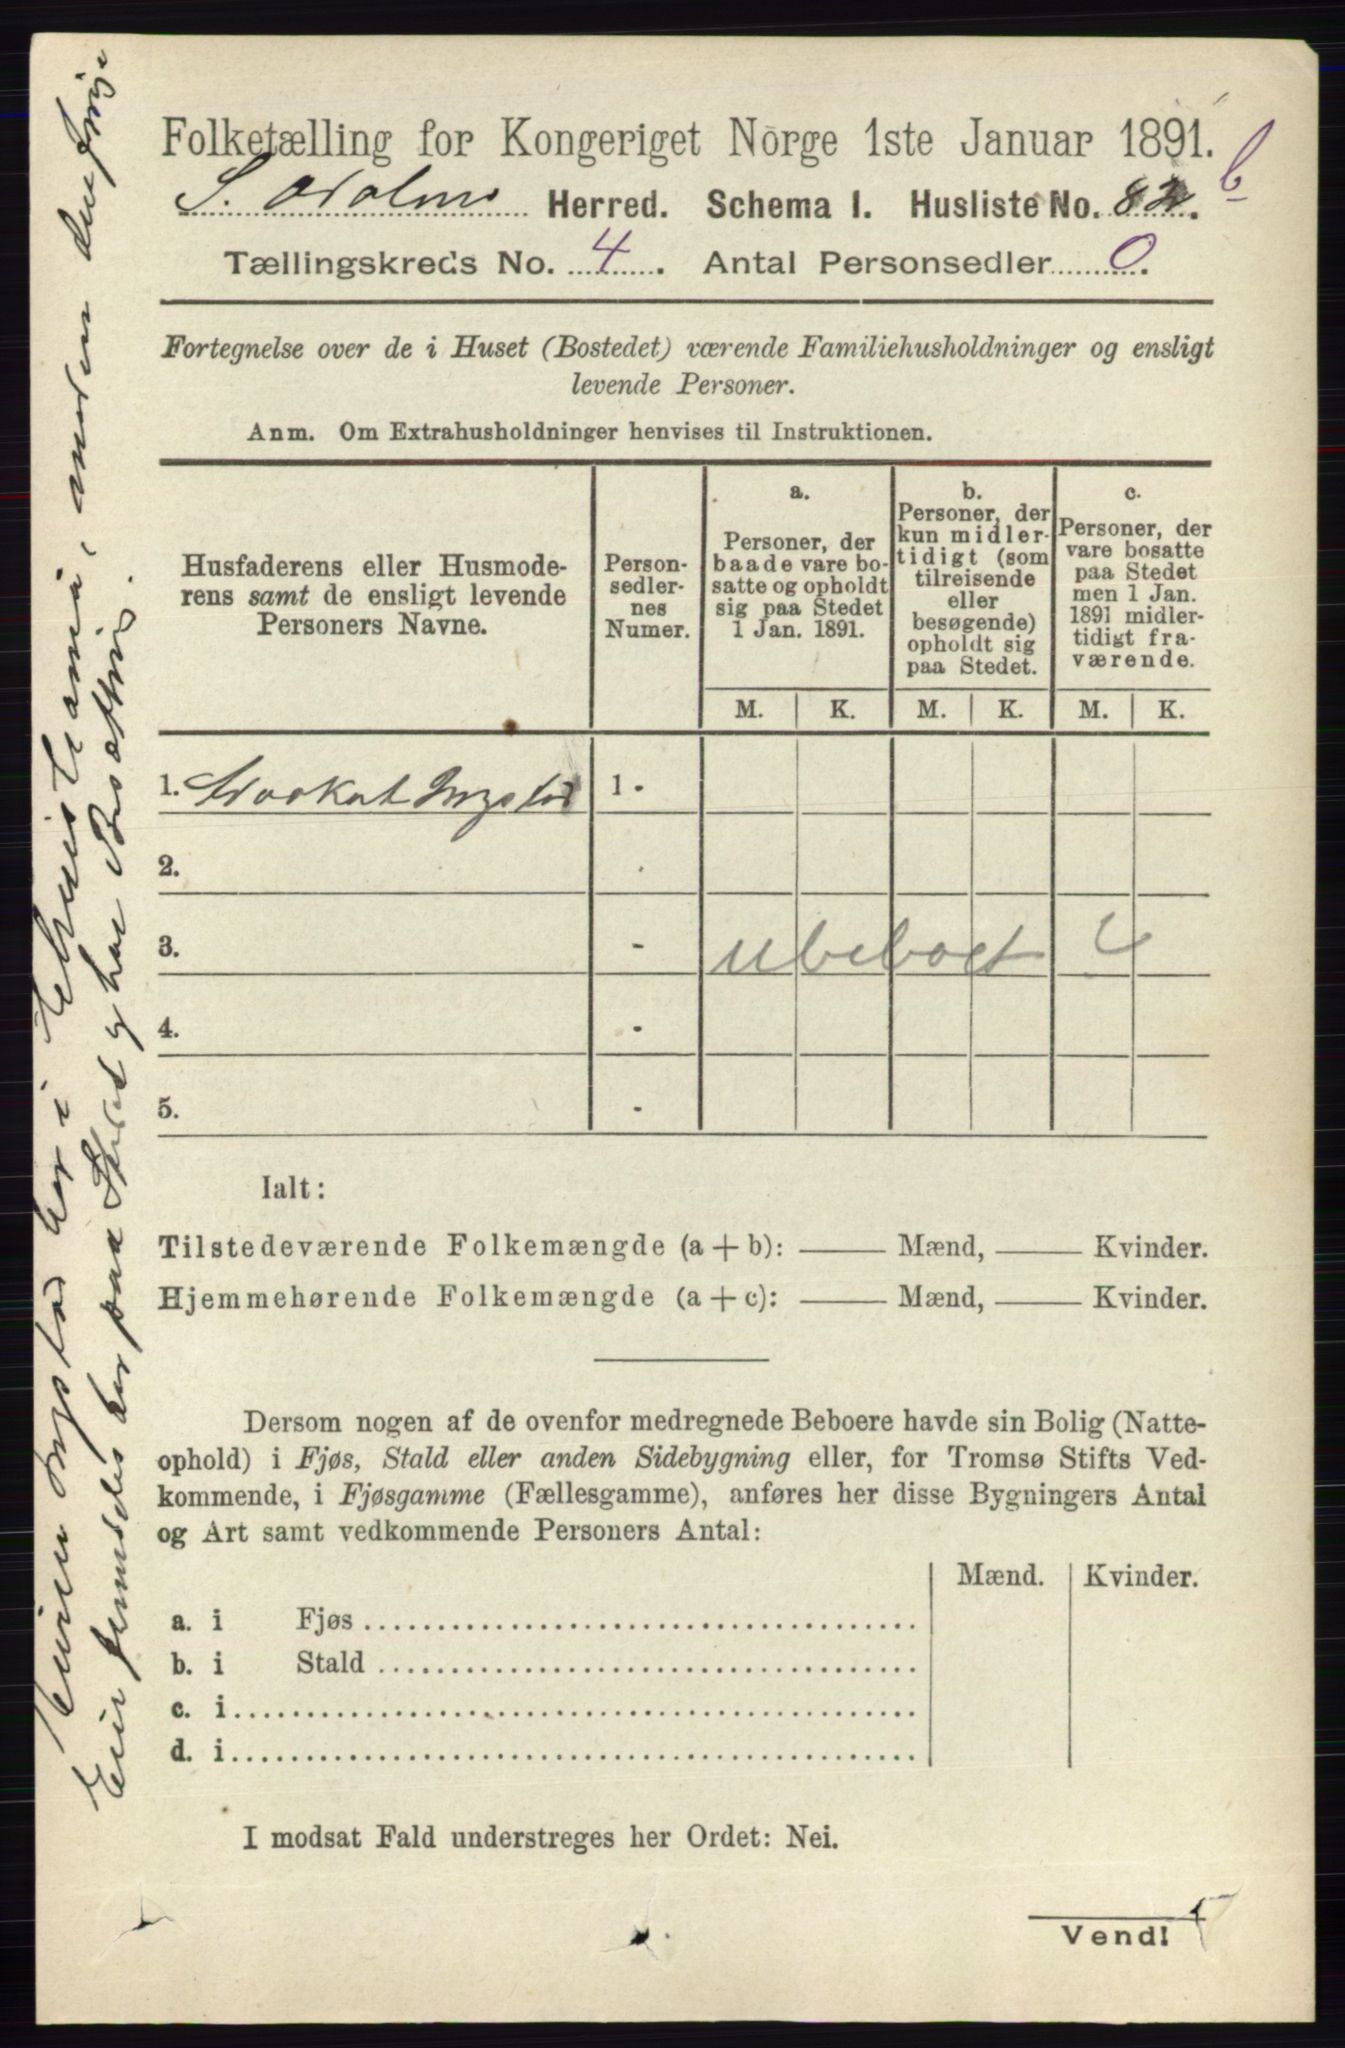 Folketælling for Kongeriget Norge 1ste Januar 1891.
S. Odalen Herred. Schema I. Husliste No. 82 b.
Tællingskreds No. 4. Antal Personsedler 0.
Fortegnelse over de i Huset (Bostedet) værende Familiehusholdninger og ensligt
levende Personer.
Anm. Om Extrahusholdninger henvises til Instruktionen.
Husfaderens eller Husmode-
rens samt de ensligt levende
Personers Navne.
Person-
sedler-
nes
Numer.
a.
Personer, der
baade vare bo-
satte og opholdt
sig paa Stedet
1 Jan. 1891.
b.
Personer, der
kun midler-
tidigt (som
tilreisende
eller
besøgende)
opholdt sig
paa Stedet.
c.
Personer, der
vare bosatte
paa Stedet
men 1 Jan.
1891 midler-
tidigt fra-
værende.
M. K. M. K. M. K.
1. Advokat Ingstad 1 -
2. -
3. - ubeboet
4. -
5. -
Ialt:
Tilstedeværende Folkemængde (a + b): —— Mænd, —— Kvinder.
Hjemmehørende Folkemængde (a + c): —— Mænd, —— Kvinder.
Dersom nogen af de ovenfor medregnede Beboere havde sin Bolig (Natte-
ophold) i Fjøs, Stald eller anden Sidebygning eller, for Tromsø Stifts Ved-
kommende, i Fjøsgamme (Fællesgamme), anføres her disse Bygningers Antal
og Art samt vedkommende Personers Antal:
Mænd. Kvinder.
a. i Fjøs
b. i Stald
c. i
d. i
I modsat Fald understreges her Ordet: Nei.
Vend!
Ingstad bor i Christiania, den
Eier her paa Stedet og har Besætning.